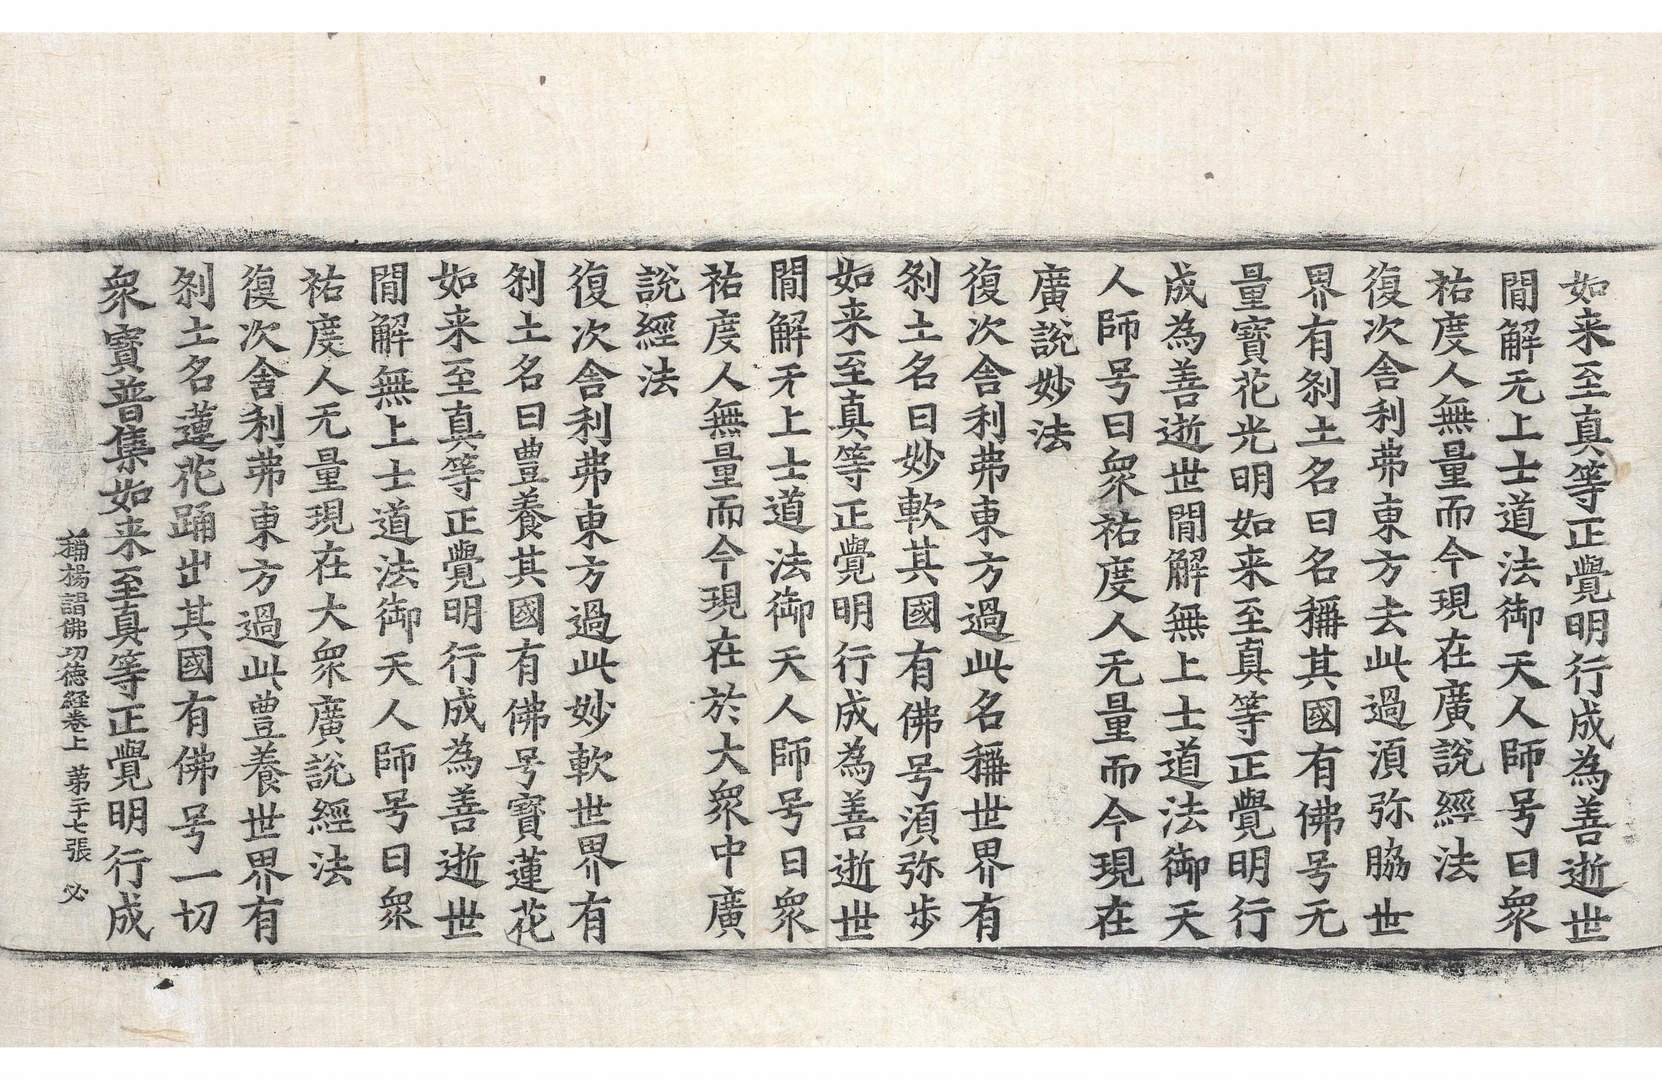 如来至真等正覺明行成為善逝世
閒解无上士道法御天人師号曰衆
祐度人無量而今現在廣說經法
復次舍利弗東方去此過湏弥脇世
界有刹土名曰名稱其國有佛号无
量寶花光明如来至真等正覺明行
成為善逝世閒解無上士道法御天
人師号曰衆祐度人无量而今現在
廣說妙法
復次舍利弗東方過此名稱世界有
刹土名曰妙軟其國有佛号湏弥步
如来至真等正覺明行成為善逝世
閒解无上士道法御天人師号曰衆
祐度人無量而今現在於大衆中廣
說經法
復次舍利弗東方過此妙軟世界有
刹土名曰豊養其國有佛号寶蓮花
如来至真等正覺明行成為善逝世
閒解無上士道法御天人師号曰衆
祐度人无量現在大衆廣說經法
復次舍利弗東方過此豊養世界有
刹土名蓮花踊出其國有佛号一切
衆寶普集如来至真等正覺明行成
稱揚諸佛功德經卷上 第二十七張 必